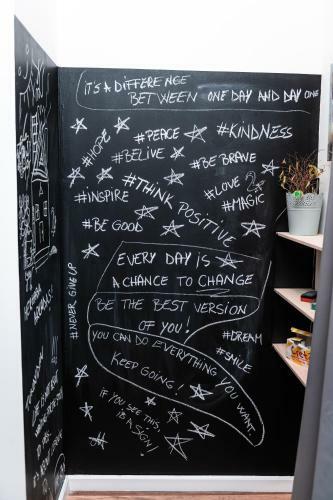 IT'S A DIFFERENCE
BETWEEN ONE DAY AND DAY ONE
#HOPE
#PEACE
#KINDNESS
#BELIVE
#BE BRAVE
#THINK POSITIVE
#LOVE
#INSPIRE
#MAGIC
#BE GOOD
#NEVER GIVE UP
EVERY DAY IS
A CHANCE TO CHANGE
BE THE BEST VERSION
OF YOU!
#DREAM
YOU CAN DO EVERYTHING YOU WANT
#SMILE
KEEP GOING!
IF YOU SEE THIS,
IS A SIGN!